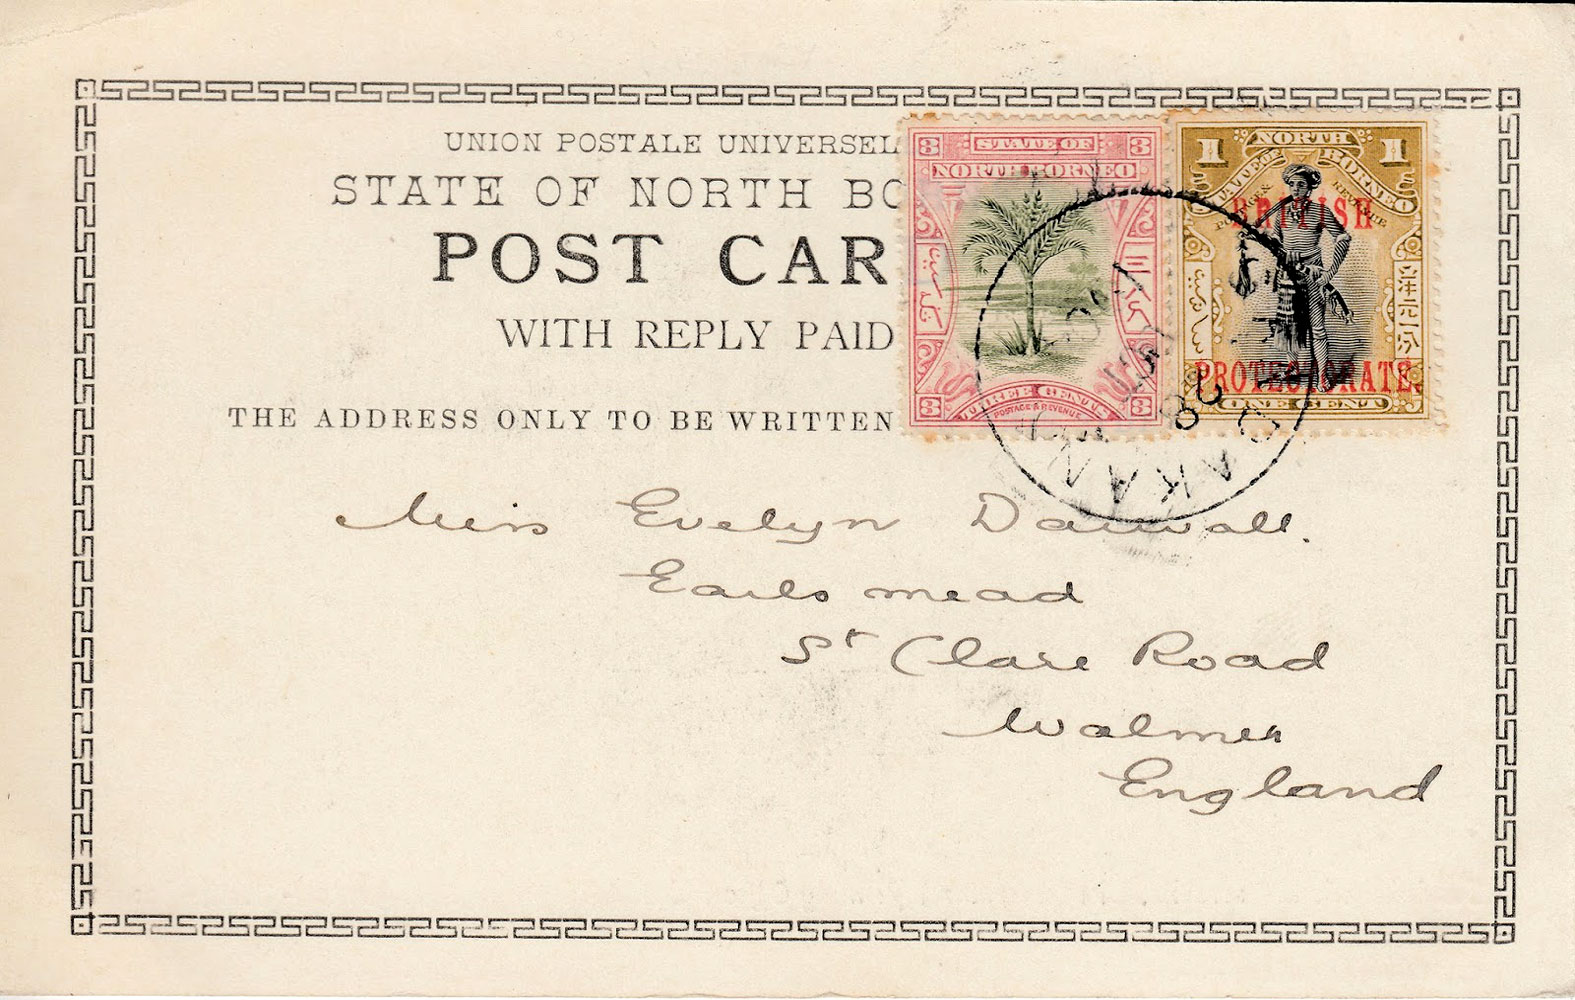 UNION POSTALE UNIVERSEL
STATE OF NORTH BO
POST CAR
WITH REPLY PAID
THE ADDRESS ONLY TO BE WRITTEN
3 STATE OF 3
NORTH BORNEO
3 THREE CENTS 3
POSTAGE & REVENUE
1 NORTH 1
STATE OF BORNEO
POSTAGE & REVENUE
BRITISH
PROTECTORATE.
ONE CENT
DAKAN
Miss Evelyn
Earlsmead
St Clare Road
Walmer
England